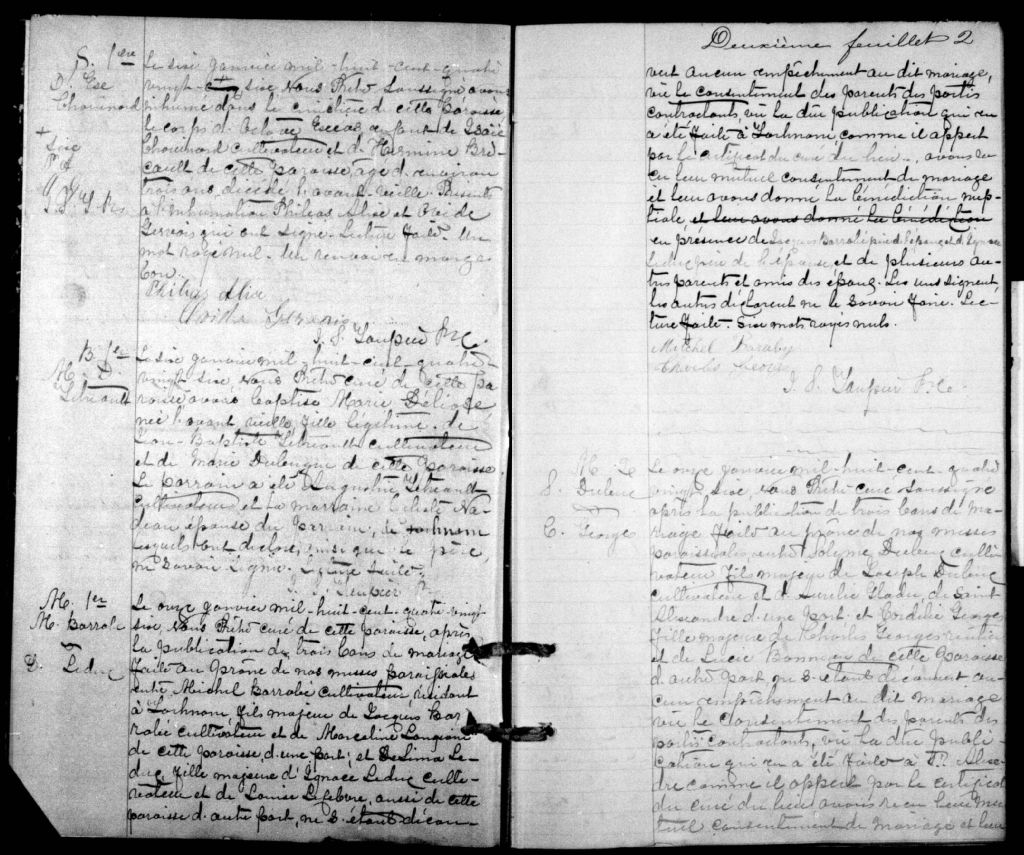 S. 1ere
Ose
Chouinard
+
Sixe
Le sixe janvier mil-huit-cent-quatre
vingt-cinq sixe Nous Prêtre soussigné avons
inhumé dans le cimetière de cette Paroisse
le corps d. enfant de Isaie
Chouinard cultivateur et de Hermine Bro-
cault de cette paroisse, agé d. environ
trois ans décédé l'avant-veille Présents
à l'inhumation Philias Alix et
Gervais qui ont signé. Lecture faite. Un
mot rayé nul. Un renvoi en marge
bon.
Philias Alix
Gervais
J. S. Taupier Ptre.
B. 1er
M. D.
Tétreault
Le sixe janvier mil-huit-cent-quatre-
vingt-sixe, nous Prêtre curé de cette pa-
roisse avons baptisé Marie Déliase
née l'avant veille, fille légitime de
Jean-Baptiste Tétreault cultivateur
et de Marie Dulengue de cette Paroisse.
Le Parrain a été Augustin Tétreault
cultivateur et la marraine Céleste Na-
deau épouse du Parrain, de
lesquels ont déclaré, ainsi que le père,
ne savoir signer. Lecture faite.
J. S. Taupier
M. 1er
M. Barrabé
D. Leduc
Le onze janvier mil-huit-cent-quatre-vingt-
sixe, Nous Prêtre curé de cette Paroisse, après
la publication de trois bans de mariage
faite au Prône de nos messes paroissiales
entre Michel Barrabé cultivateur, résidant
à fils majeur de Jacques Bar-
rabée cultivateur et de Marceline Longpin
de cette paroisse d'une part; et Delima Le-
duc fille majeure d'Ignace Leduc culti-
vateur et de Louise Lefebvre, aussi de cette
paroisse d. autre part, ne s. étant décou-
Deuxième feuillet 2
vert aucun empêchement au dit mariage,
vû le consentement des parents des partis
contractants, vû la due publication qui en
a été faite à comme il appert
par le certificat du curé du lieu, avons re-
çu leur mutuel consentement de mariage
et leur avons donné la bénédiction nup-
tiale et leur avons donné la bénédiction
en présence de Jacques Barrabé père de l'époux et d. Ignace
Leduc père de l'épouse et de plusieurs au-
tres parents et amis des époux. Les uns signent
les autres déclarent ne le savoir faire. Lec-
ture faite. Sixe mots rayés nuls.
Mitchel Baraby
J. S. Taupier Ptre
M. 2
S. Duleuc
C. Georges
Le onze janvier mil-huit-cent-quatre
vingt-sixe, nous Prêtre curé soussigné
après la publication de trois bans de ma-
riage faite au prône de nos messes
paroissiales, entre Solyme Duleuc culti-
vateur, fils majeur de Joseph Duleuc
cultivateur et d. Aurélie Gladu, de Saint
Alexandre d'une part; et Cordélie Georges,
fille majeure de Charles Georges rentier
et de Lucie Bonneau de cette Paroisse
d. autre part ne s-étant découvert au-
cun empêchement au dit mariage
vû le consentement des parents des
partis contractants, vû la due publi-
cation qui en a été faite à St. Alexan-
dre comme il appert par le certificat
du curé du lieu avons reçu leur mu-
tuel consentement de mariage et leur